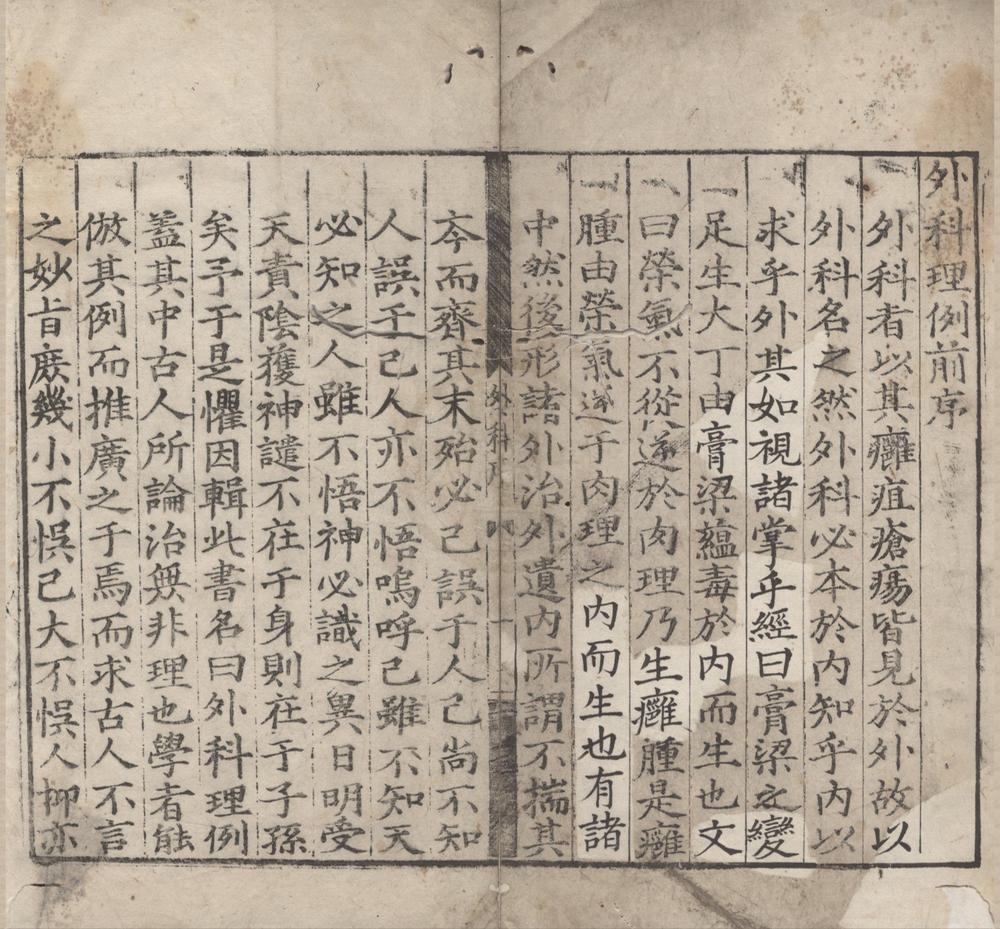 外科理例前序
外科者以其癰疽瘡瘍皆見於外故以
外科名之然外科必本於內知乎內以
求乎外其如視諸掌乎經曰膏梁之變
足生大丁由膏梁蘊毒於內而生也又
曰榮氣不從逆於肉理乃生癰腫是癰
腫由榮氣逆于肉理之內而生也有諸
中然後形諸外治外遺內所謂不揣其
外科序
夲而齊其末殆必己誤于人己尚不知
人誤于己人亦不悟嗚呼己雖不知天
必知之人雖不悟神必識之異日明受
天責陰獲神譴不在于身則在于子孫
矣予于是懼因輯此書名曰外科理例
葢其中古人所論治無非理也學者能
倣其例而推廣之于焉而求古人不言
之妙旨庶幾小不悞己大不悞人抑亦